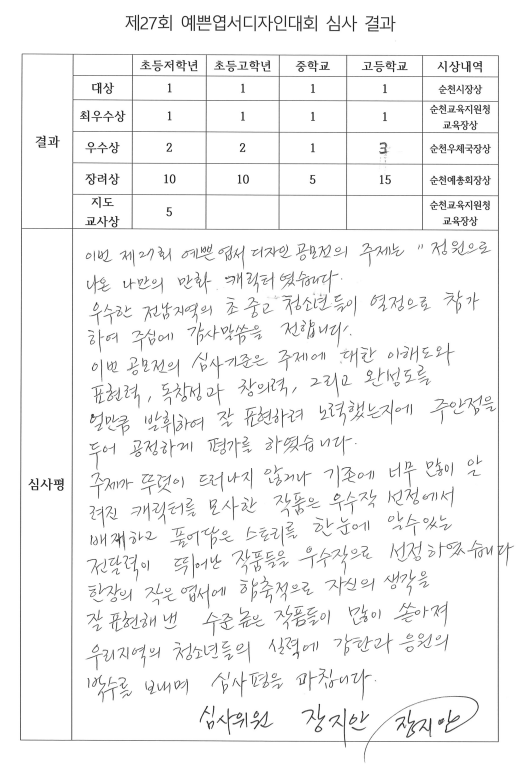 제27회 예쁜엽서디자인대회 심사 결과
결과 초등저학년 초등고학년 중학교 고등학교 시상내역
대상 1 1 1 1 순천시장상
최우수상 1 1 1 1 순천교육지원청 교육장상
우수상 2 2 1 3 순천우체국장상
장려상 10 10 5 15 순천예총회장상
지도 교사상 5 순천교육지원청 교육장상
심사평
이번 제27회 예쁜 엽서 디자인 공모전의 주제는 "정원으로
나온 나만의 만화 캐릭터 였습니다.
우수한 전남지역의 초 중고 청소년들이 열정으로 참가
하여 주심에 감사말씀을 전합니다.
이번 공모전의 심사기준은 주제에 대한 이해도와
표현력, 독창성과 창의력, 그리고 완성도를
얼만큼 발휘하여 잘 표현하려 노력했는지에 주안점을
두어 공정하게 평가를 하였습니다.
주제가 뚜렷이 드러나지 않거나 기존에 너무 많이 알
려진 캐릭터를 모사한 작품은 우수작 선정에서
배제하고 풀어담은 스토리를 한눈에 알수있는
전달력이 뛰어난 작품들을 우수작으로 선정하였습니다
한장의 작은 엽서에 함축적으로 자신의 생각을
잘 표현해 낸 수준높은 작품들이 많이 쏟아져
우리지역의 청소년들의 실력에 감탄과 응원의
박수를 보내며 심사평을 마칩니다.
심사위원 장지안 장지안